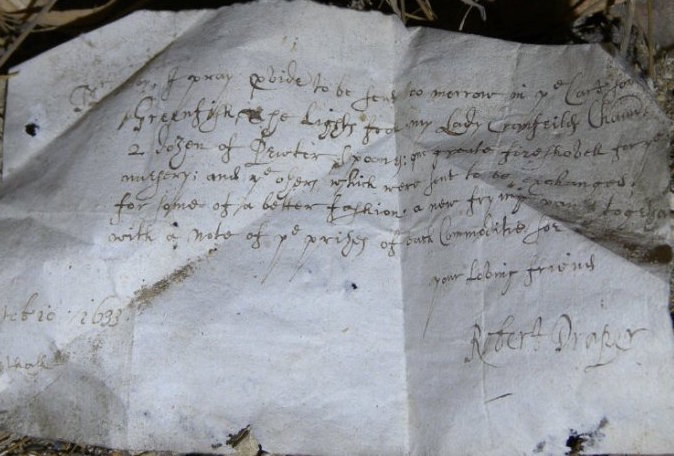 I pray pvide to be sent to morrow in ye Cart some
Greenfish, The Lights from my Lady Cranfeilds Cham
2 dozen of Pewter Spoons: one greate fireshovell for ye
nursery: and ye oyers which were sent to be exchanged
for some of a better fashion, a new frying pann togeher
with a note of ye prises of such Commodities for
your loving friend
Robert Draper
Octob 1633